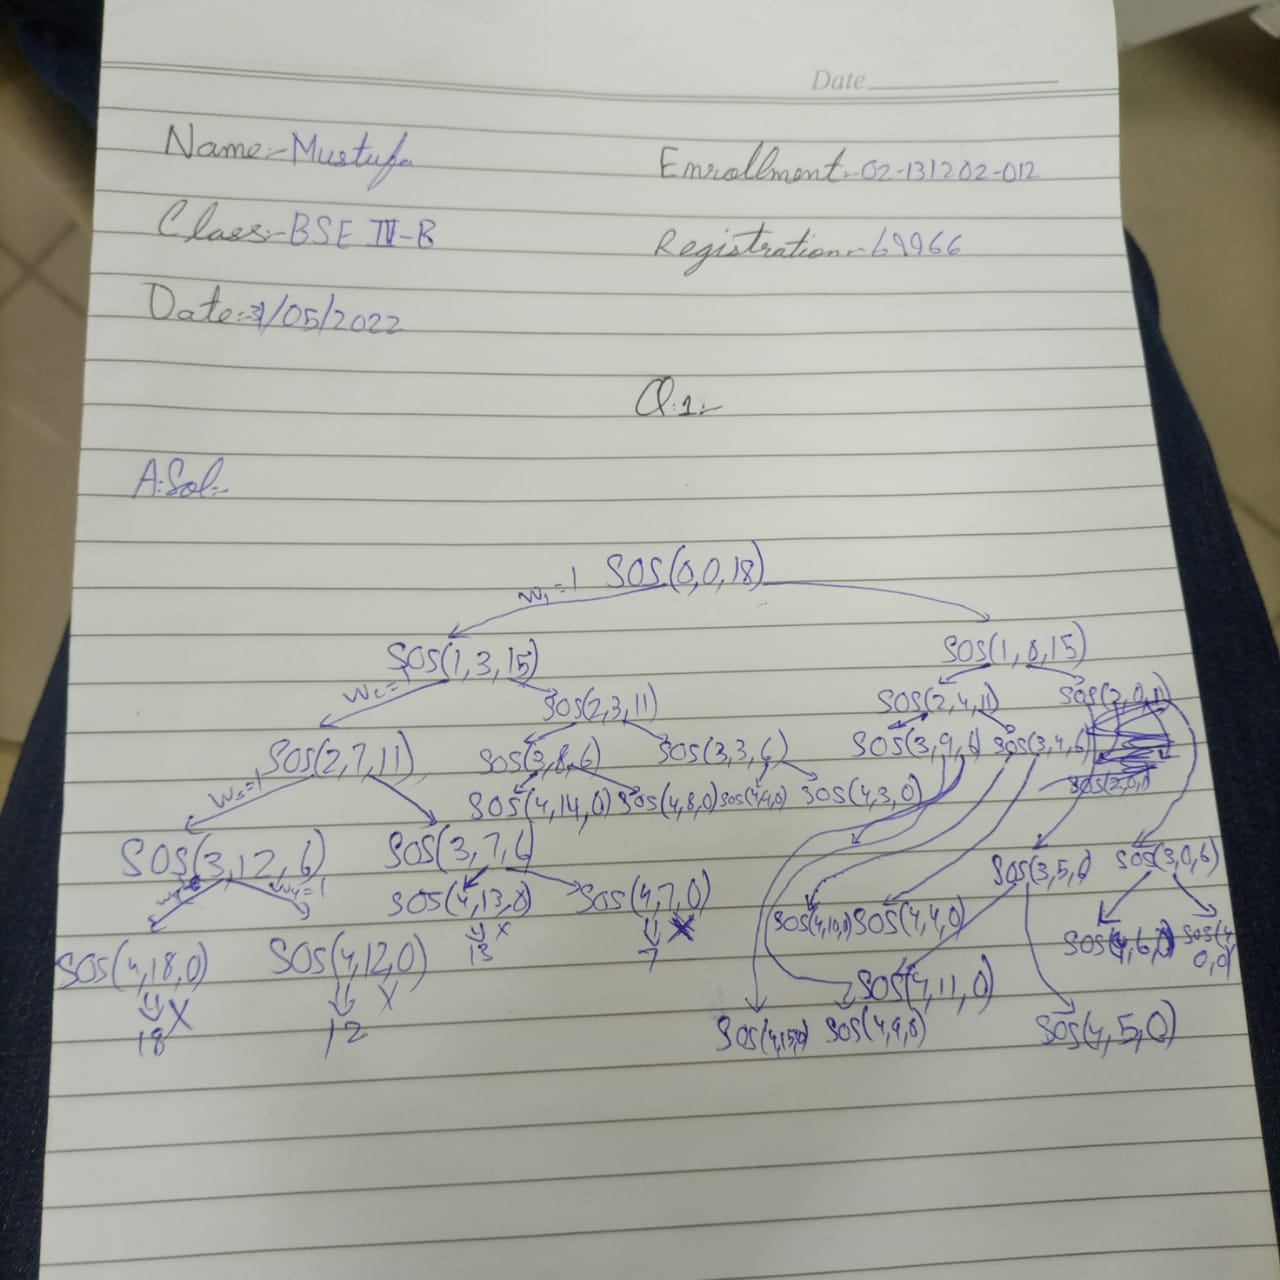 Date
Name:- Mustufa
Enrollment:- 02-131202-012
Class:- BSE IV-B
Registration:- 69966
Date:- 31/05/2022
Q.1:-
A:Sol:-
SOS(0,0,18)
W₁=1
SOS(1,3,15)
SOS(1,0,15)
SOS(2,3,11)
SOS(2,4,11)
SOS(2,0,11)
SOS(2,7,11)
SOS(3,8,6)
SOS(3,3,6)
SOS(3,9,6)
SOS(3,4,6)
SOS(4,14,0)
SOS(4,8,0)
SOS(4,9,0)
SOS(4,3,0)
SOS(3,12,6)
SOS(3,7,6)
SOS(3,5,0)
SOS(3,0,6)
W₄=1
SOS(4,13,0)
SOS(4,7,0)
SOS(4,10,0)
SOS(4,4,0)
13
X
7
X
SOS(4,6,0)
SOS(4,0,0)
SOS(4,18,0)
SOS(4,12,0)
SOS(4,11,0)
X
X
18
12
SOS(4,15,0)
SOS(4,9,0)
SOS(4,5,0)